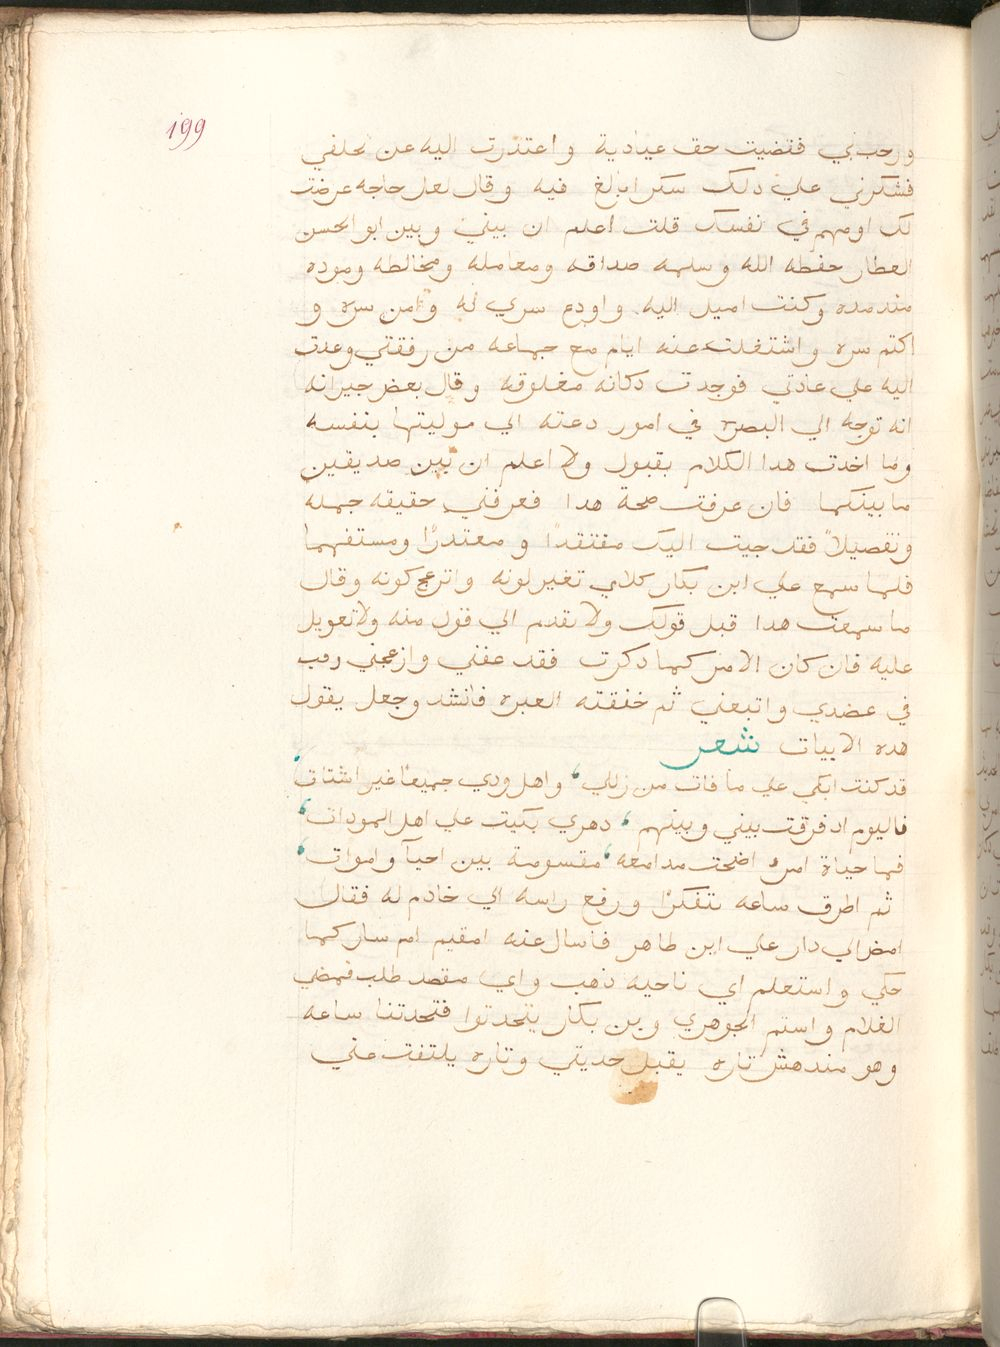 199
وارحب بي فقضيت حق عيادية واعتذرت اليه عن تخلفي
فشكرني علي دلك سكرا بالغ فيه وقال لعل حاجه عرضت
لك او مهم في نفسك قلت اعلم ان بيني وبين ابو الحسن
العطار حفظه الله وسلمه صداقه ومعامله ومخالطه وموده
مند مده وكنت اميل اليه واودع سري له وامن سره و
اكتم سره واشتغلت عنه ايام مع جماعه من رفقتي وعدت
اليه علي عادتي فوجدت دكانه مغلوقه وقال بعض جيرانه
انه توجه الي البصره في امور دعته الي موليتها بنفسه
وما اخدت هدا الكلام بقبول ولا اعلم ان بين صديقين
ما بينكما فان عرفت صحة هدا فعرفني حقيقه جمله
وتفصيلاً فقد جيت اليك مفتقداً ومعتدراً ومستفهما
فلما سمع علي ابن بكار كلاي تغير لونه واترعج كونه وقال
ما سمعت هدا قبل قولك ولا تقدم الي قول منه ولا تعويل
عليه فان كان الامر كما دكرت فقد عفني وازعجني وفت
في عضدي واتبعني ثم خنقته العبره فانشد وجعل يقول
هده الابيات شعر
قد كنت ابكي علي ما فات من زللي، واهل ودي جميعا غير اشتات
فاليوم اد فرقت بيني وبينهم، دهري بكيت علي اهل المودات،
فما حياة امرء اضحت مدامعه، مقسومة بين احيآ واموات،
ثم اطرق ساعه تتفكرا ورفع راسه الي خادم له فقال
امض الي دار علي ابن طاهر فاسال عنه امقيم ام سار كما
حكي واستعلم اي ناحيه ذهب واي مقصد طلب فمضي
الغلام واستم الجوهري وبن بكار يتحدتوا فتحدتنا ساعه
وهو مندهش تاره يقبل حديتي وتاره يلتفت عني